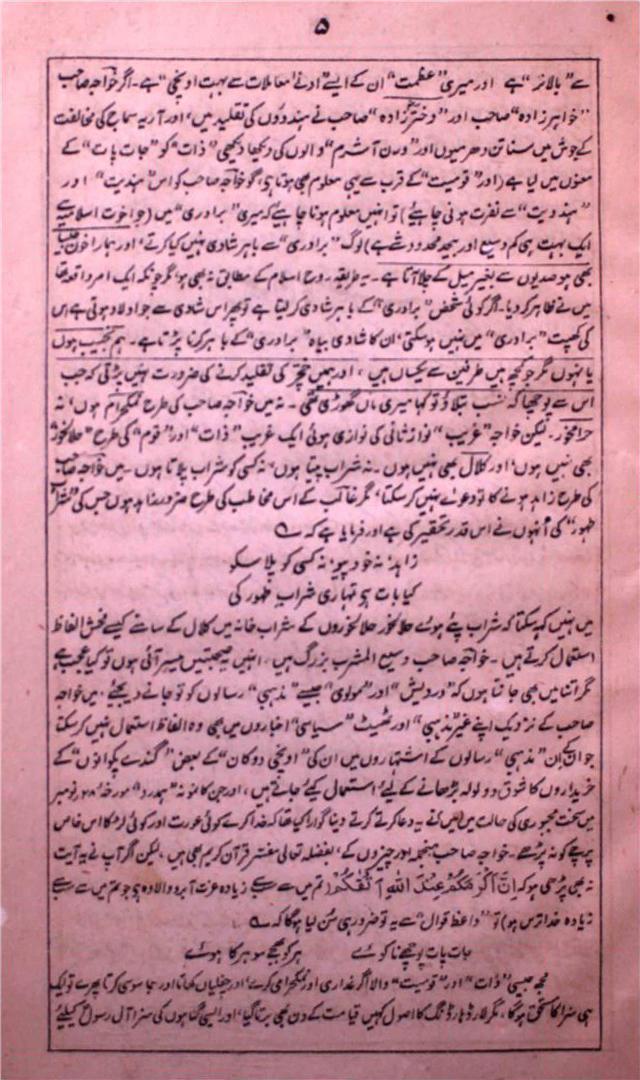 ۵
سے "بالاتر" ہے اور میری "عظمت" ان کے ایسے ادنےٰ معاملات سے بہت اونچی ہے۔ اگر خواجہ صاحب
"خواہرزادہ" صاحب اور "دخترزادہ" صاحب نے ہندوؤں کی تقلید میں، اور آریہ سماج کی مخالفت
کے جوش میں سناتن دھرمیوں اور "ورن آشرم" والوں کی دیکھا دیکھی "ذات" کو "جات پات" کے
معنوں میں لیا ہے (اور "قومیت" کے قرب سے یہی معلوم بھی ہوتا ہے، گو خواجہ صاحب کو اس "ہندیت" اور
"ہندویت" سے نفرت ہونی چاہئے) تو انہیں معلوم ہونا چاہئے کہ میری "برادری" میں (جو اخوت اسلامیہ سے
ایک بہت ہی کم وسیع اور بیحد محدود شے ہے) لوگ "برادری" سے باہر شادی نہیں کیا کرتے، اور ہمارا خون
بھی جو صدیوں سے بغیر میل کے چلا آتا ہے۔ یہ طریقہ روح اسلام کے مطابق نہ بھی ہو، مگر چونکہ ایک امر واقعہ تھا
میں نے ظاہر کردیا۔ اگر کوئی شخص "برادری" کے باہر شادی کرلیتا ہے تو پھر اس شادی سے جو اولاد ہوتی ہے اس
کی کھپت "برادری" میں نہیں ہوسکتی، ان کا شادی بیاہ "برادری" کے باہر کرنا پڑتا ہے۔ ہم نجیب ہوں
یا نہوں مگر جو کچھ ہیں طرفین سے یکساں ہیں، اور ہمیں خچر کی تقلید کرنے کی ضرورت نہیں پڑتی کہ جب
اس سے پوچھا کہ نسب بتلاؤ تو کہا میری ماں گھوڑی تھی۔ نہ میں خواجہ صاحب کی طرح نمکحرام ہوں، نہ
حرامخور۔ لیکن خواجہ "غریب" نواز ثانی کی نوازی ہوئی ایک غریب "ذات" اور "قوم" کی طرح "حلالخور"
بھی نہیں ہوں، اور کلال بھی نہیں ہوں۔ نہ شراب پیتا ہوں، نہ کسی کو شراب پلاتا ہوں۔ میں خواجہ صاحب
کی طرح زاہد ہونے کا تو دعوےٰ نہیں کرسکتا، مگر غالب کے اس مخاطب کی طرح ضرور زاہد ہوں جس کی "شراب
طہور" کی اُنہوں نے اس قدر تحقیر کی ہے اور فرمایا ہے کہ ؎
زاہد! نہ خود پیو، نہ کسی کو پلا سکو
کیا بات ہے تمہاری شراب طہور کی
میں نہیں کہہ سکتا کہ شراب پئے ہوئے حلالخور حلالخوروں کے شراب خانہ میں کلال کے سامنے کیسے فحش الفاظ
استعمال کرتے ہیں۔ خواجہ صاحب وسیع المشرب بزرگ ہیں، انہیں یہ صحبتیں میسر آئی ہوں تو کیا عجب ہے
مگر اتنا میں بھی جانتا ہوں کہ "درویش" اور "مولوی" جیسے "مذہبی" رسالوں کو تو جانے دیجئے، میں خواجہ
صاحب کے نزدیک اپنے غیر "مذہبی" اور ٹھیٹ "سیاسی" اخباروں میں بھی وہ الفاظ استعمال نہیں کرسکتا
جو ان کے ان "مذہبی" رسالوں کے اشتہاروں میں ان کی "اونچی دوکان" کے بعض "گندے پکوانوں" کے
خریداروں کا شوق و ولولہ بڑھانے کے لئے استعمال کئے جاتے ہیں، اور جن کا نمونہ "ہمدرد" مورخہ ۲۸ نومبر
میں سخت مجبوری کی حالت میں اس نے یہ دعا کرتے کرتے دینا گوارا کیا تھا کہ خدا کرے کوئی عورت اور کوئی لڑکا اس خاص
پرچے کو نہ پڑھے۔ خواجہ صاحب منجملہ اور چیزوں کے، بفضلہ تعالیٰ مفسر قرآن کریم بھی ہیں، لیکن اگر آپ نے یہ آیت
نہ بھی پڑھی ہو کہ اِنَّ اَکْرَمَکُمْ عِنْدَ اللّٰہِ اَتْقٰکُمْ (تم میں سب سے زیادہ عزت آبرو والا وہ ہے جو تم میں سب سے
زیادہ خدا ترس ہو) تو "واعظ قوال" سے یہ تو ضرور ہی سُن لیا ہوگا کہ ؎
جات پات پوچھے نا کوئے ہر کو بھجے سو ہر کا ہوئے
مجھ جیسی "ذات" اور "قومیت" والا اگر غداری اور نمکحرامی کرے، اور چغلیاں کھاتا اور جاسوسی کرتا پھرے تو ایک
ہی سزا کا مستحق ہوگا، مگر لارڈ ہارڈنگ کا اصول کہیں قیامت کے دن بھی برتا گیا، اور ایسی گناہوں کی سزا آل رسولؐ کیلئے